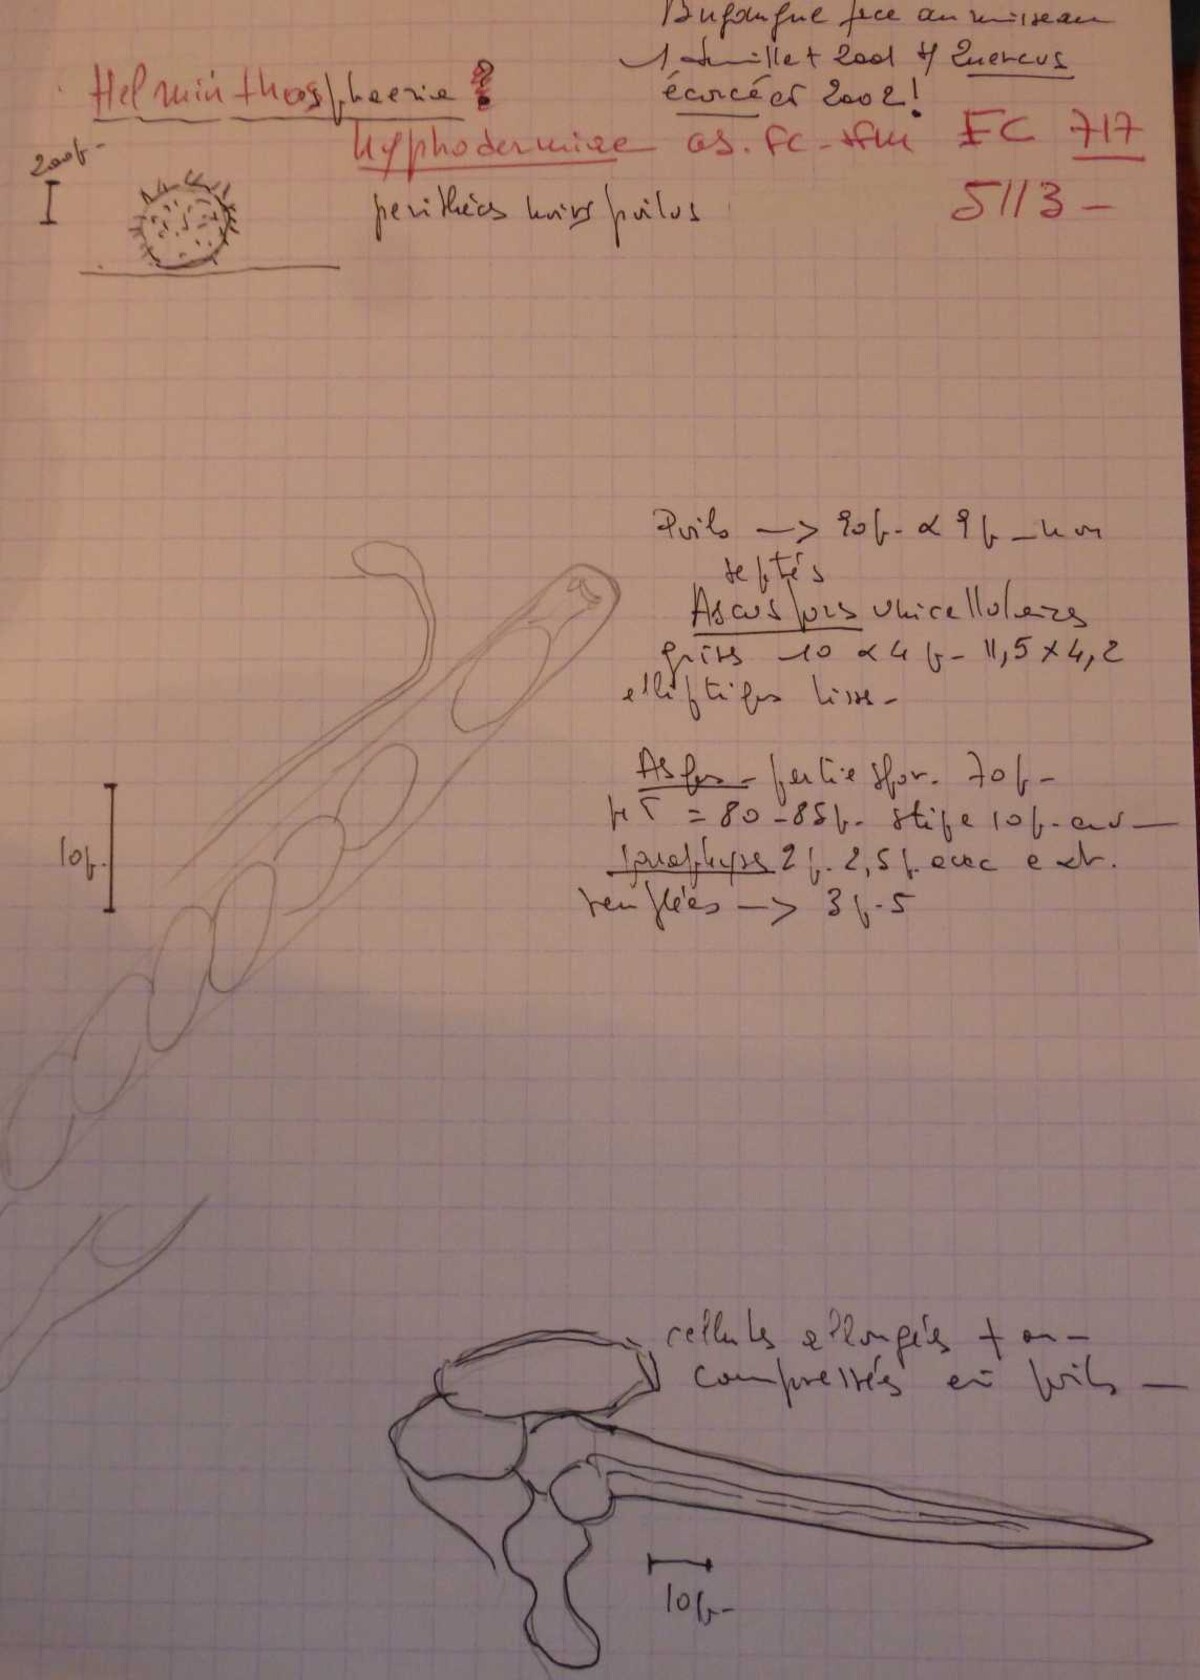 face au ruisseau
1 Juillet 2001 s/ Quercus
Helminthosphaeria ?
écorcé et 2002!
hyphodermiae FC 717
200µ
périthèces noirs poilus
5113 -
Poils -> 90µ x 9µ - non
septés
Ascospores unicellulaires
grises 10 x 4 µ - 11,5 x 4,2
elliptiques lisses -
Asques - partie spor. 70µ -
= 80 - 85µ. stipe 10µ env -
10µ
paraphyses 2µ. 2,5µ avec extr.
renflées -> 3µ.5
cellules allongées + ou -
compressées poils -
10µ